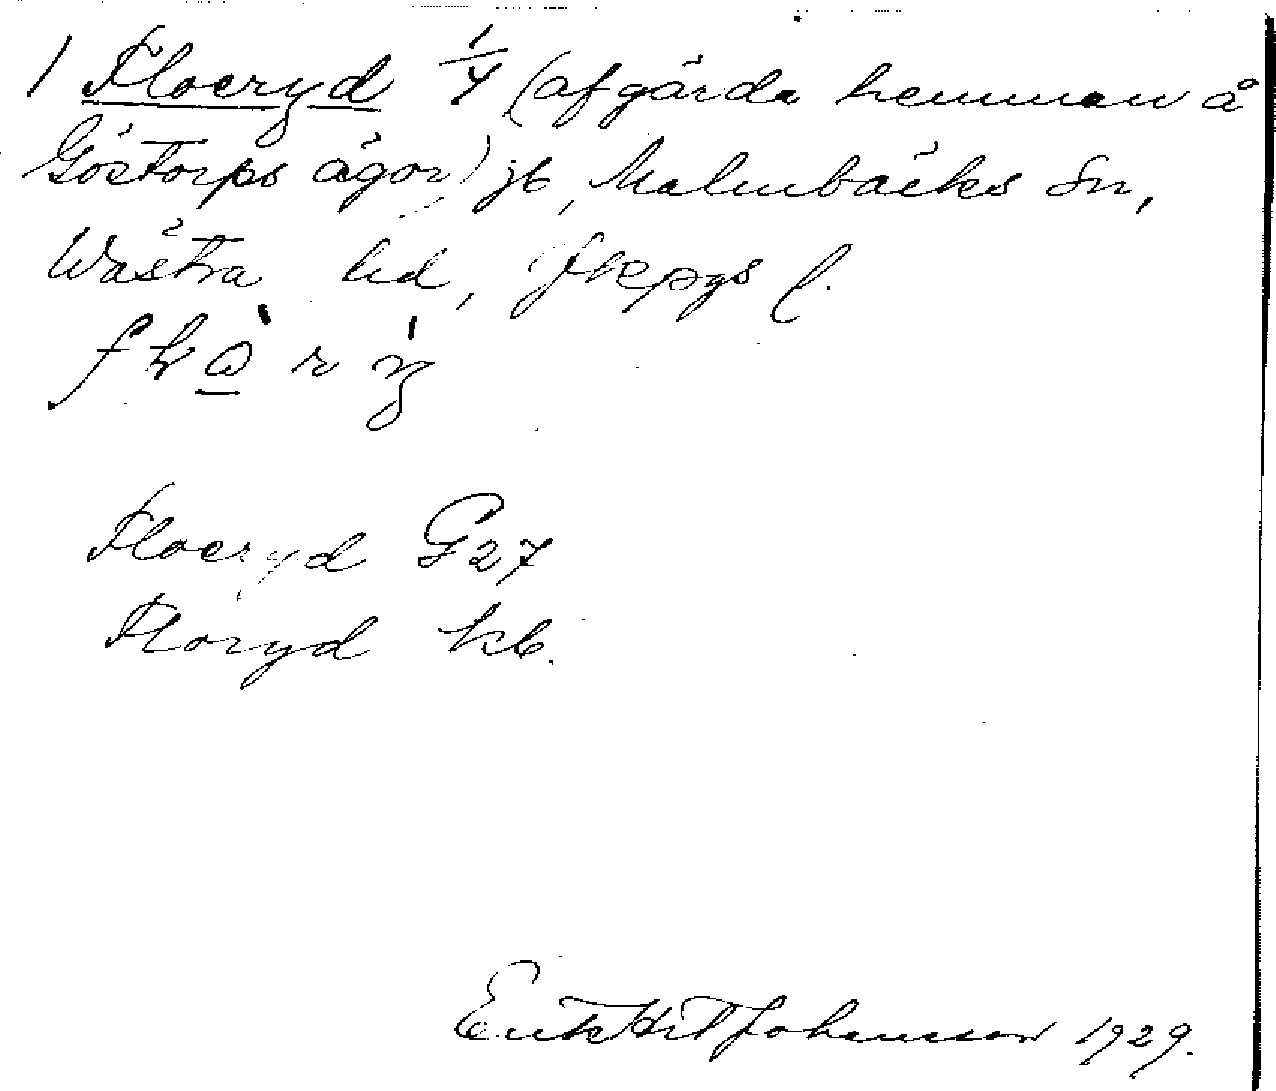 1 Floeryd 1/4 (afgärda hemman å
Göstorps ägor) jb, Malmbäcks Sn,
Wästra hd, Jkpgs l.
Floeryd G27
Floryd kb.
Johansson 1929.